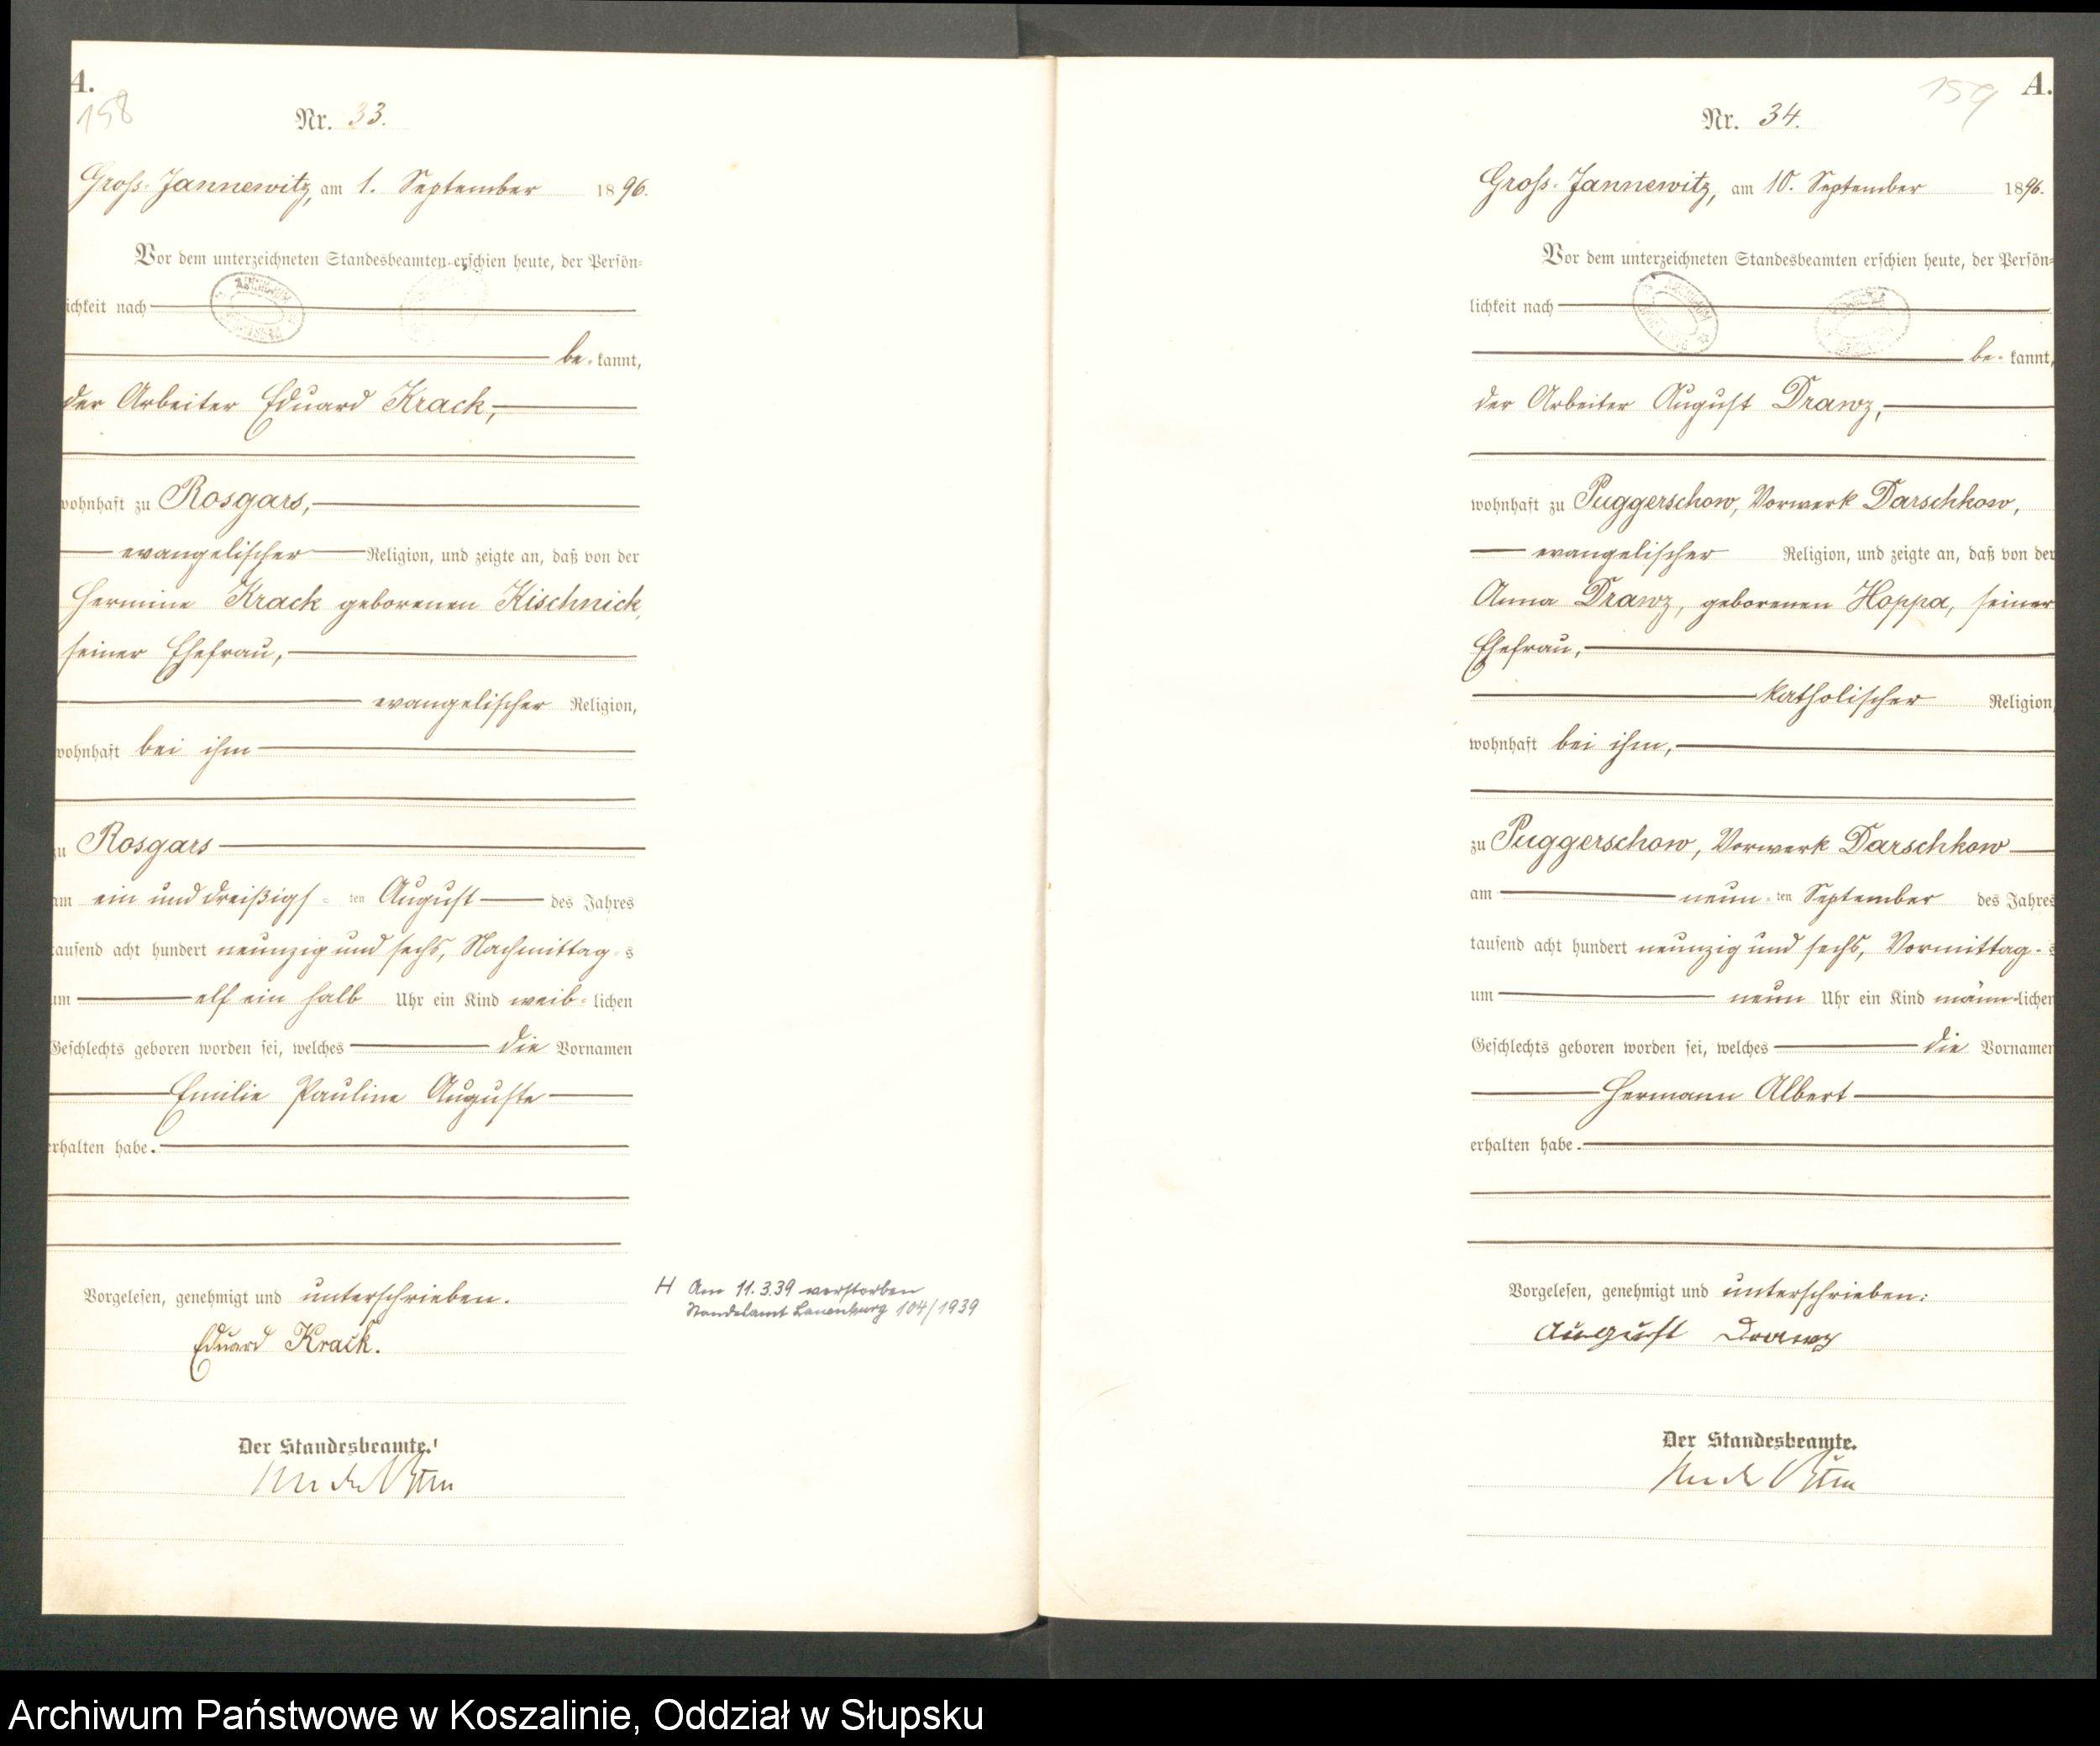 A.
158
Nr. 33.
Groß-Jannewitz, am 1. September 1896.
Vor dem unterzeichneten Standesbeamten erschien heute, der Persön-
lichkeit nach
be- kannt,
der Arbeiter Eduard Krack,
wohnhaft zu Rosgars,
evangelischer Religion, und zeigte an, daß von der
Hermine Krack geborenen Kischnick,
seiner Ehefrau,
evangelischer Religion,
wohnhaft bei ihm
zu Rosgars
am ein und dreißigs- ten August des Jahres
tausend acht hundert neunzig und sechs, Nachmittag- s
um elf ein halb Uhr ein Kind weib- lichen
Geschlechts geboren worden sei, welches die Vornamen
Emilie Pauline Auguste
erhalten habe.
Vorgelesen, genehmigt und unterschrieben.
Eduard Krack.
Der Standesbeamte.
H Am 11.3.39 verstorben
Standesamt Lauenburg 104/1939
159
A.
Nr. 34.
Groß-Jannewitz, am 10. September 1896.
Vor dem unterzeichneten Standesbeamten erschien heute, der Persön-
lichkeit nach
be- kannt,
der Arbeiter August Drawz,
wohnhaft zu Puggerschow, Vorwerk Darschkow,
evangelischer Religion, und zeigte an, daß von der
Anna Drawz, geborenen Hoppa, seiner
Ehefrau,
katholischer Religion,
wohnhaft bei ihm,
zu Puggerschow, Vorwerk Darschkow
am neun- ten September des Jahres
tausend acht hundert neunzig und sechs, Vormittag- s
um neun Uhr ein Kind männ-lichen
Geschlechts geboren worden sei, welches die Vornamen
Hermann Albert
erhalten habe.
Vorgelesen, genehmigt und unterschrieben:
August Drawz
Der Standesbeamte.
Archiwum Państwowe w Koszalinie, Oddział w Słupsku